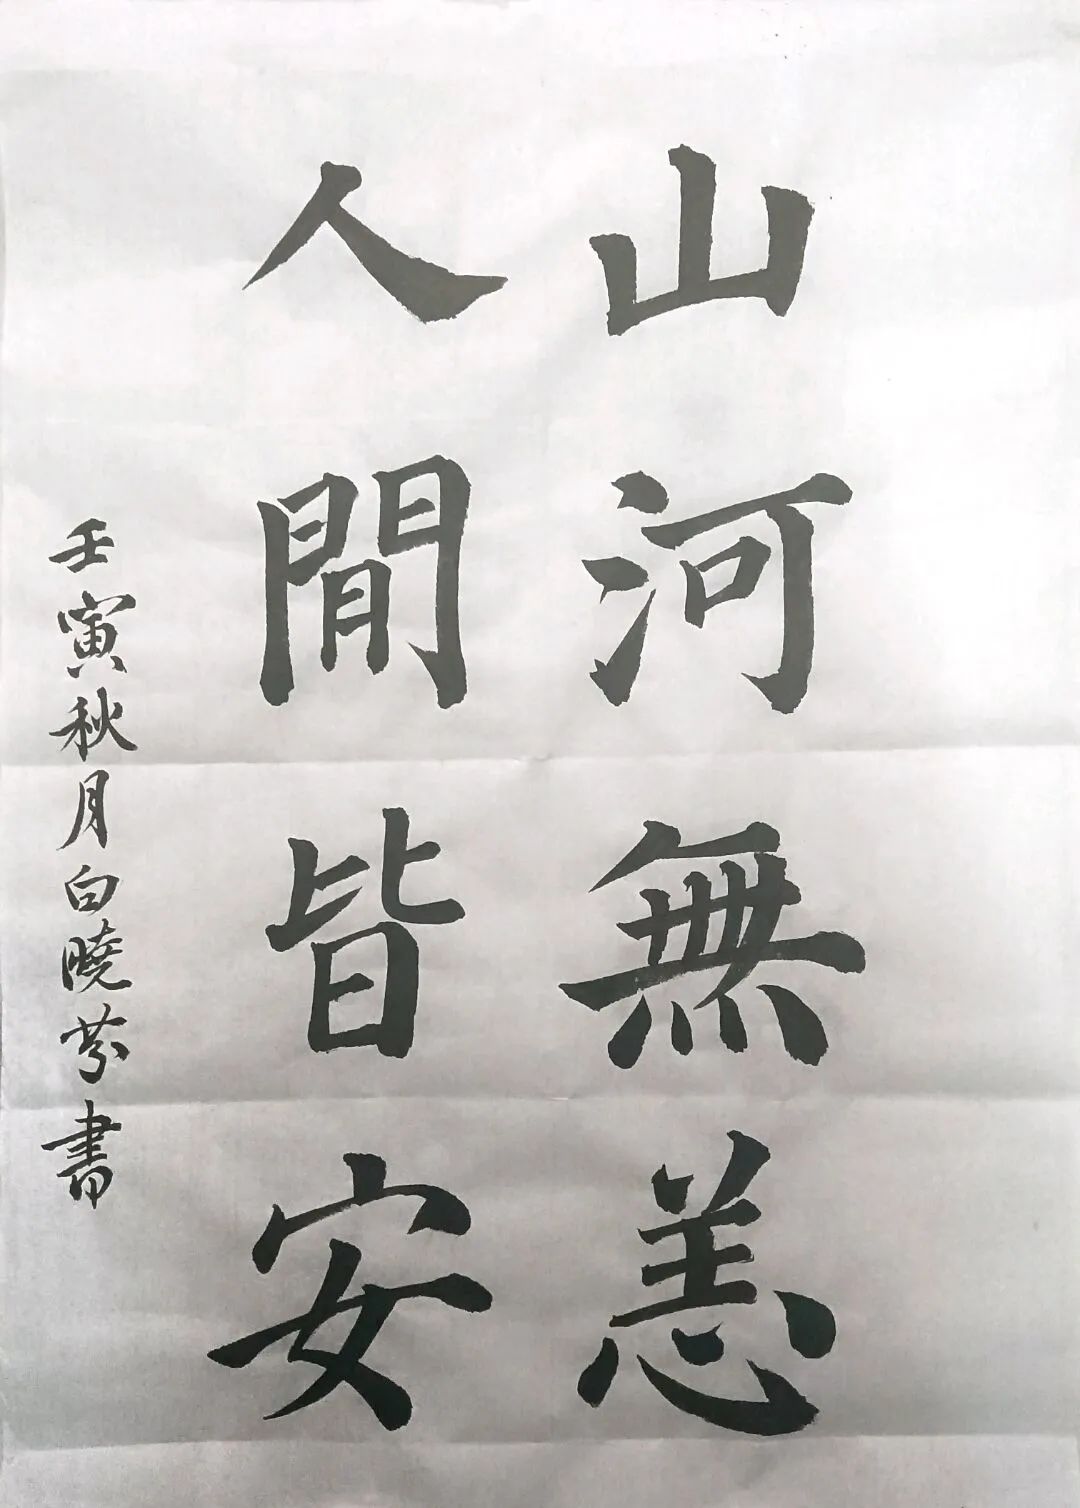 山河無恙
人間皆安
壬寅秋月白曉芬書